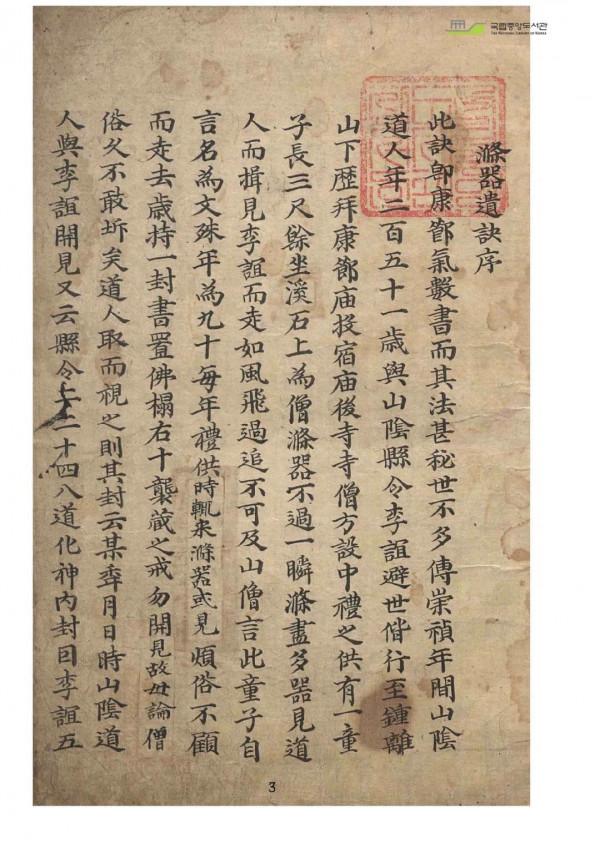 국립중앙도서관
THE NATIONAL LIBRARY OF KOREA
滌器遺訣序
此訣卽康節氣數書而其法甚秘世不多傳崇禎年間山陰
道人年二百五十一歲與山陰縣令李誼避世偕行至鍾離
山下歷拜康節庙投宿庙後寺寺僧方設中禮之供有一童
子長三尺餘坐溪石上爲僧滌器不過一瞬滌盡多器見道
人而揖見李誼而走如風飛過追不可及山僧言此童子自
言名爲文殊年爲九十每年禮供時輒来滌器或見煩俗不顧
而走去歲持一封書置佛榻右十襲藏之戒勿開見故毋論僧
俗久不敢坼矣道人取而視之則其封云某年月日時山陰道
人與李誼開見又云縣令上二十四八道化神內封曰李誼五
3